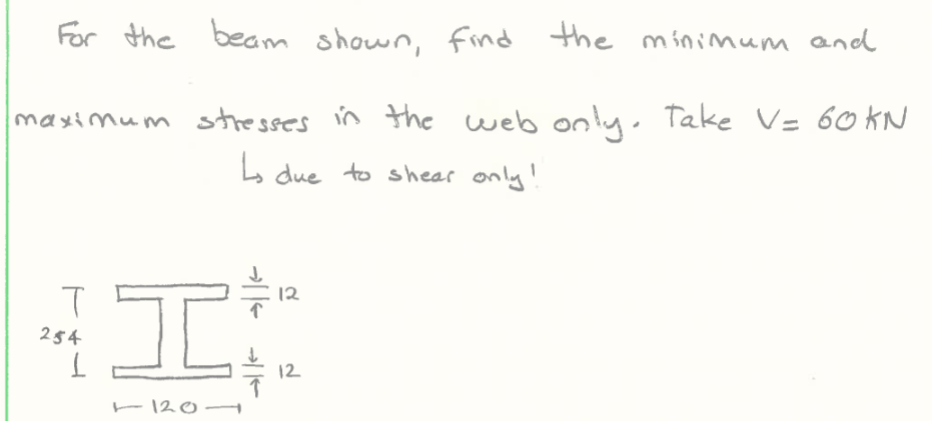 For the beam shown, find the minimum and
maximum stresses in the web only. Take V= 60 KN
↳ due to shear only!
12
254
12
120